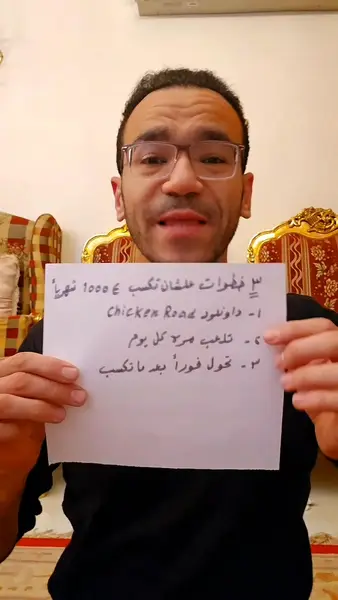 ٣ خطوات علشان تكسب 1000 € شهرياً
١- داونلود Chicken Road
٢- تلعب مرة كل يوم
٣- تحول فوراً بعد ما تكسب